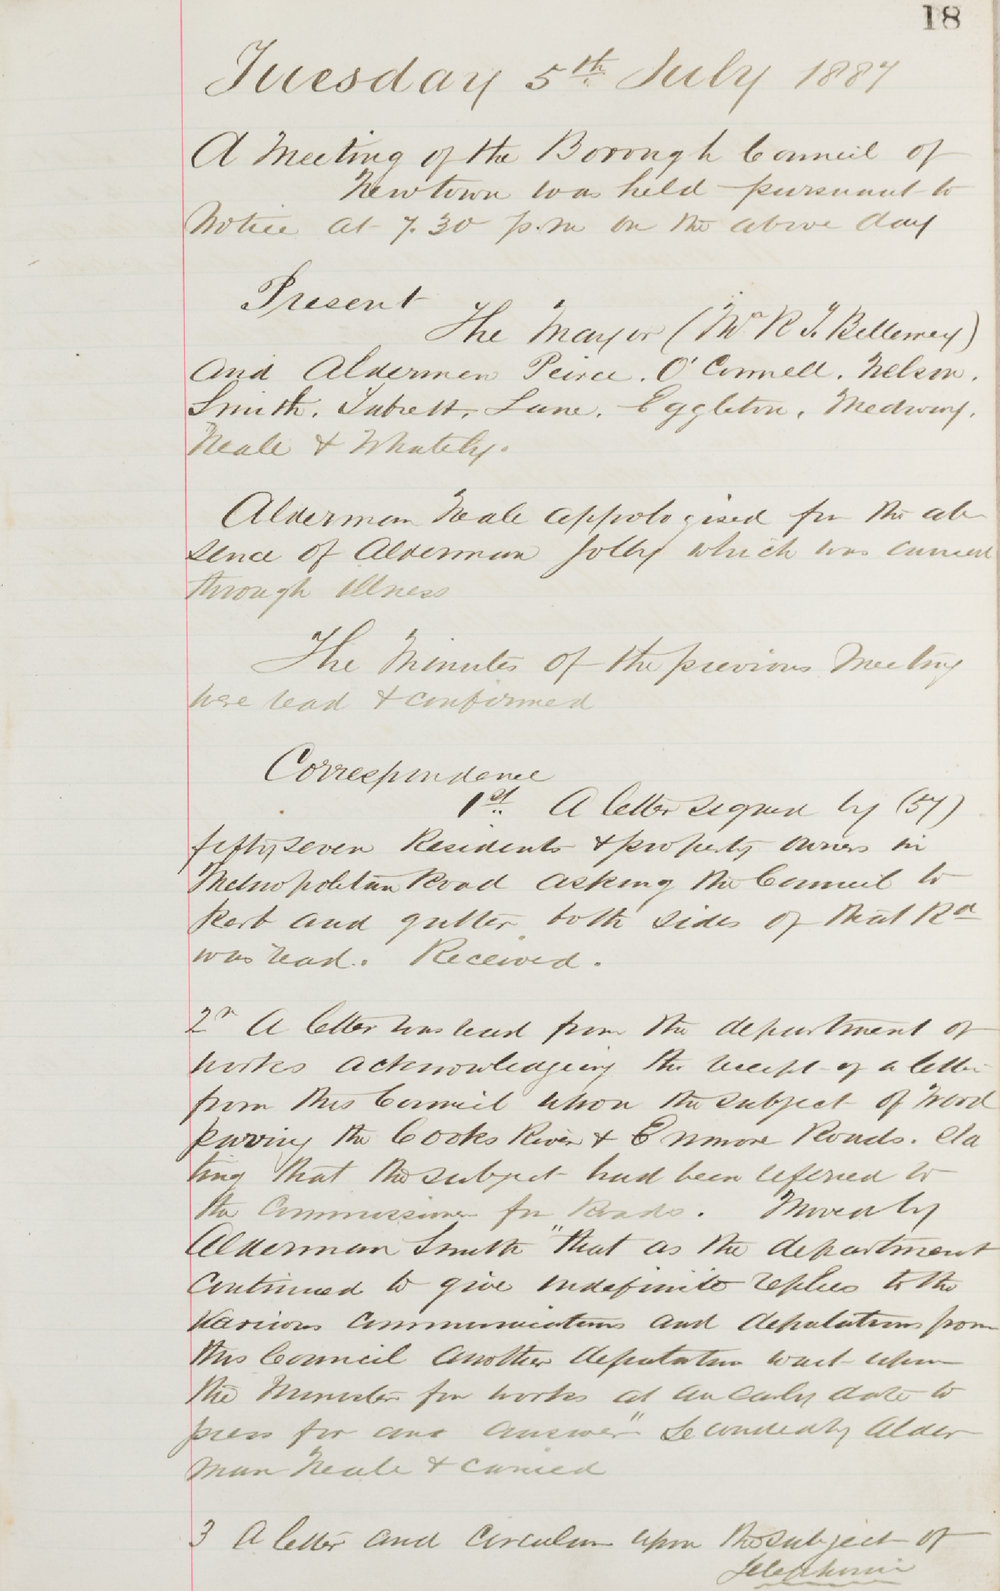 18
Tuesday 5th July 1887
A Meeting of the Borough Council of
Newtown was held pursuant to
Notice at 7.30 p.m on the above day
Present
The Mayor (Mr R T. Bellemey)
and Aldermen Peirce. O'Connell. Nelson.
Smith. Tabrett. Lane. Eggleton. Medway.
Neale & Whately.
Alderman Neale appologised for the ab
sence of Alderman Jolly which was caused
through illness
The Minutes of the previous Meeting
were read & confirmed
Correspondence
1st. A letter signed by (57)
fiftyseven Residents & property owners in
Metropolitan Road asking the Council to
Kerb and gutter both sides of that Rd
was read. Received.
2n A letter was read from the department of
works acknowledgeing the receipt of a letter
from this Council upon the subject of Wood
paving the Cooks River & Enmore Roads. sta
ting that the subject had been refered to
the Commissioner for Roads. Moved by
Alderman Smith "that as the department
continued to give indefinite replies to the
various communications and deputations from
this Council another deputation wait upon
the Minister for works at an early date to
press for an answer" Seconded by Alder
man Neale & carried
3 A letter and circular upon the subject of
Telephonic